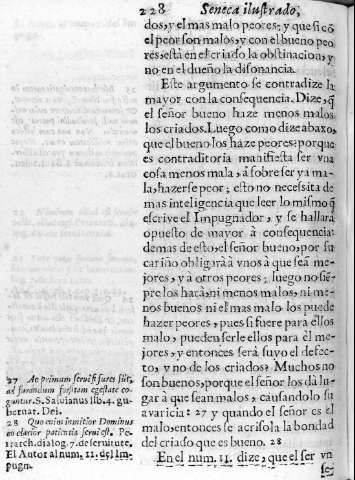 228 Seneca ilustrado,
dos, y el mas malo peores: y que si cō
el peor son malos, y con el bueno peo
res, està en el criado la obstinacion, y
no en el dueño la disonancia.
Este argumento se contradize la
mayor con la consequencia. Dize, q̄
el señor bueno haze menos malos
los criados. Luego como dize abaxo,
que el bueno los haze peores: porque
es contraditoria manifiesta ser vna
cosa menos mala, à sobre ser ya ma-
la, hazerse peor; esto no necesita de
mas inteligencia que leer lo mismo q̄
escrive el Impugnador, y se hallarà
opuesto de mayor à consequencia:
demas de esto, el señor bueno, por su
cariño obligarà à vnos à que seā me-
jores, y à otros peores; luego no siē-
pre los harà, ni menos malos, ni me-
nos buenos ni el mas malo los puede
hazer peores, pues si fuere para ellos
malo, pueden serle ellos para èl me-
jores, y entonces serà suyo el defec-
to, y no de los criados? Muchos no
son buenos, porque el señor los dà lu-
gar à que sean malos, causandolo su
avaricia: 27 y quando el señor es el
malo, entonces se acrisola la bondad
del criado que es bueno. 28
En el num. 11. dize, que el ser vn
se-
27 Ac primum servi si fures sūt,
ad furandum forsitam egestate co-
guntur. S. Salvianus lib. 4. gu-
bernat. Dei.
28 Quo enim inmitior Dominus
eo clarior patientia servi est. Pe-
trarch. dialog. 7. de servitute.
El Autor al num. 11. del Im-
pugn.